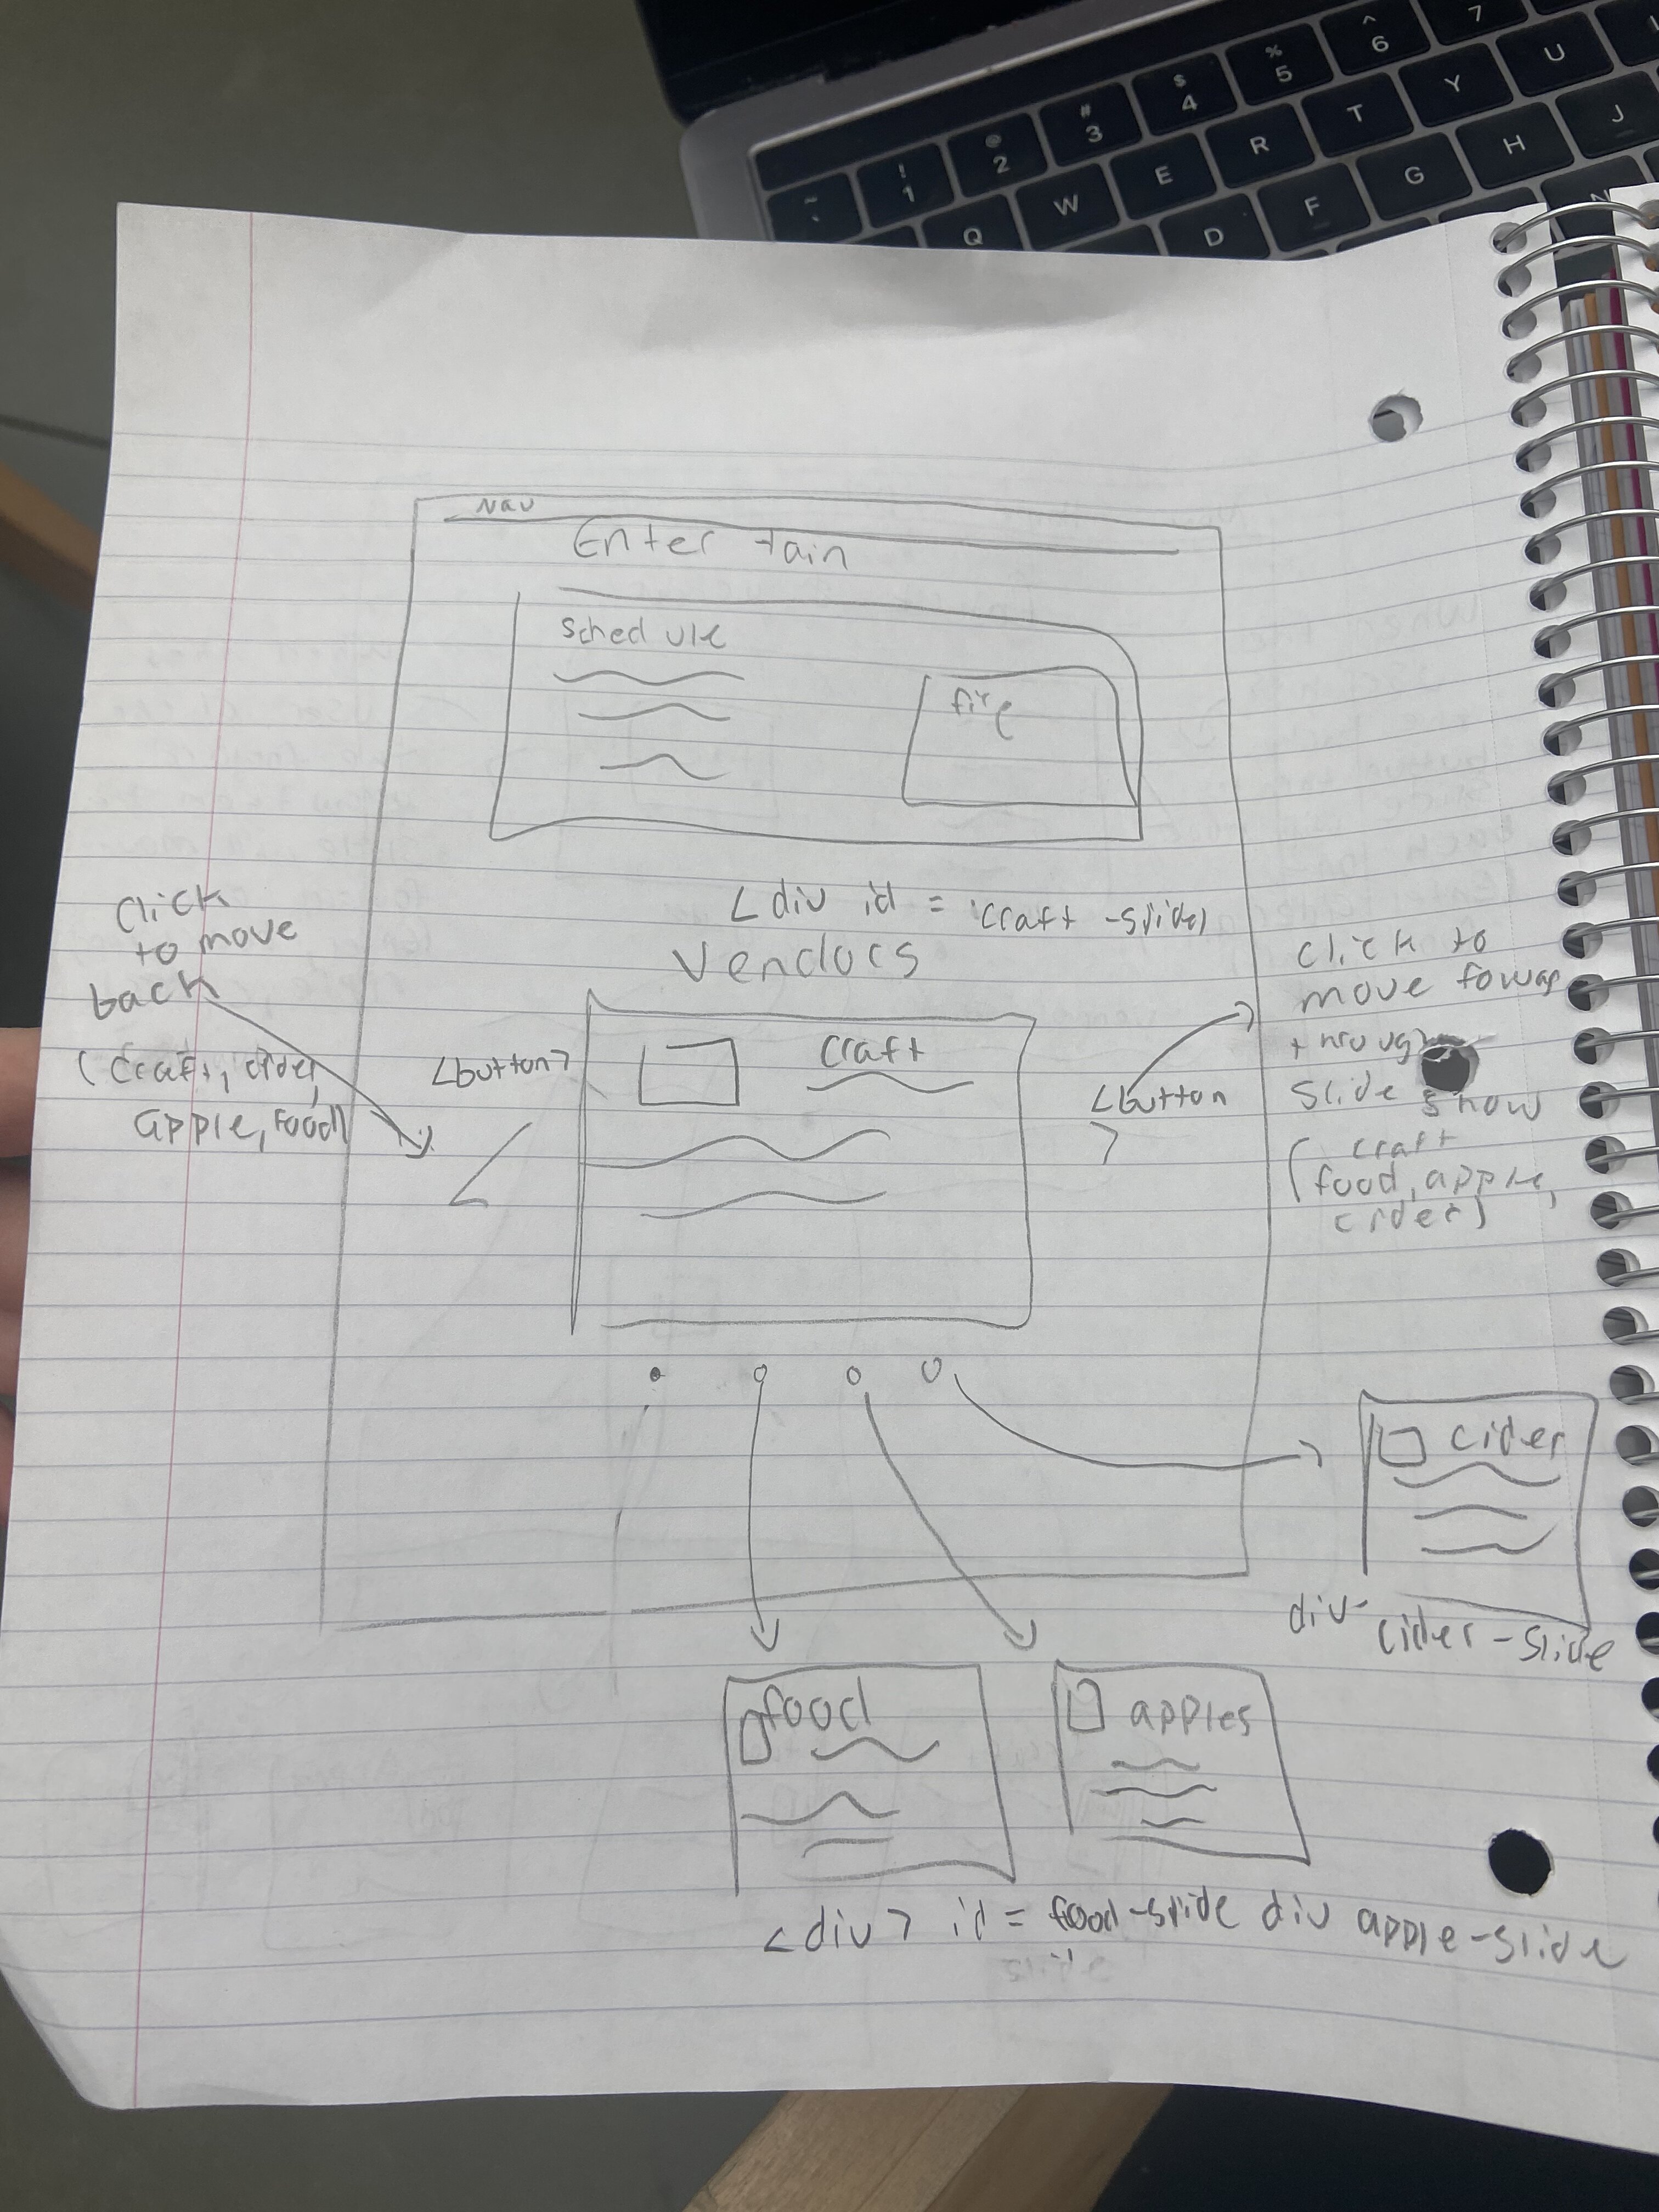 ~ `
! 1
@ 2
# 3
$ 4
% 5
^ 6
7
Q W E R T Y U
D F G H J
Nav
Enter tain
schedule
fire
<div id = 'craft -slide)
Vendors
Click
to move
back
(craft, cider,
apple, food)
<button>
craft
<button
>
<
click to
move foward
through
slide show
(craft
food, apple,
cider)
cider
div-
cider-slide
food
apples
<div> id = food-slide div apple-slide